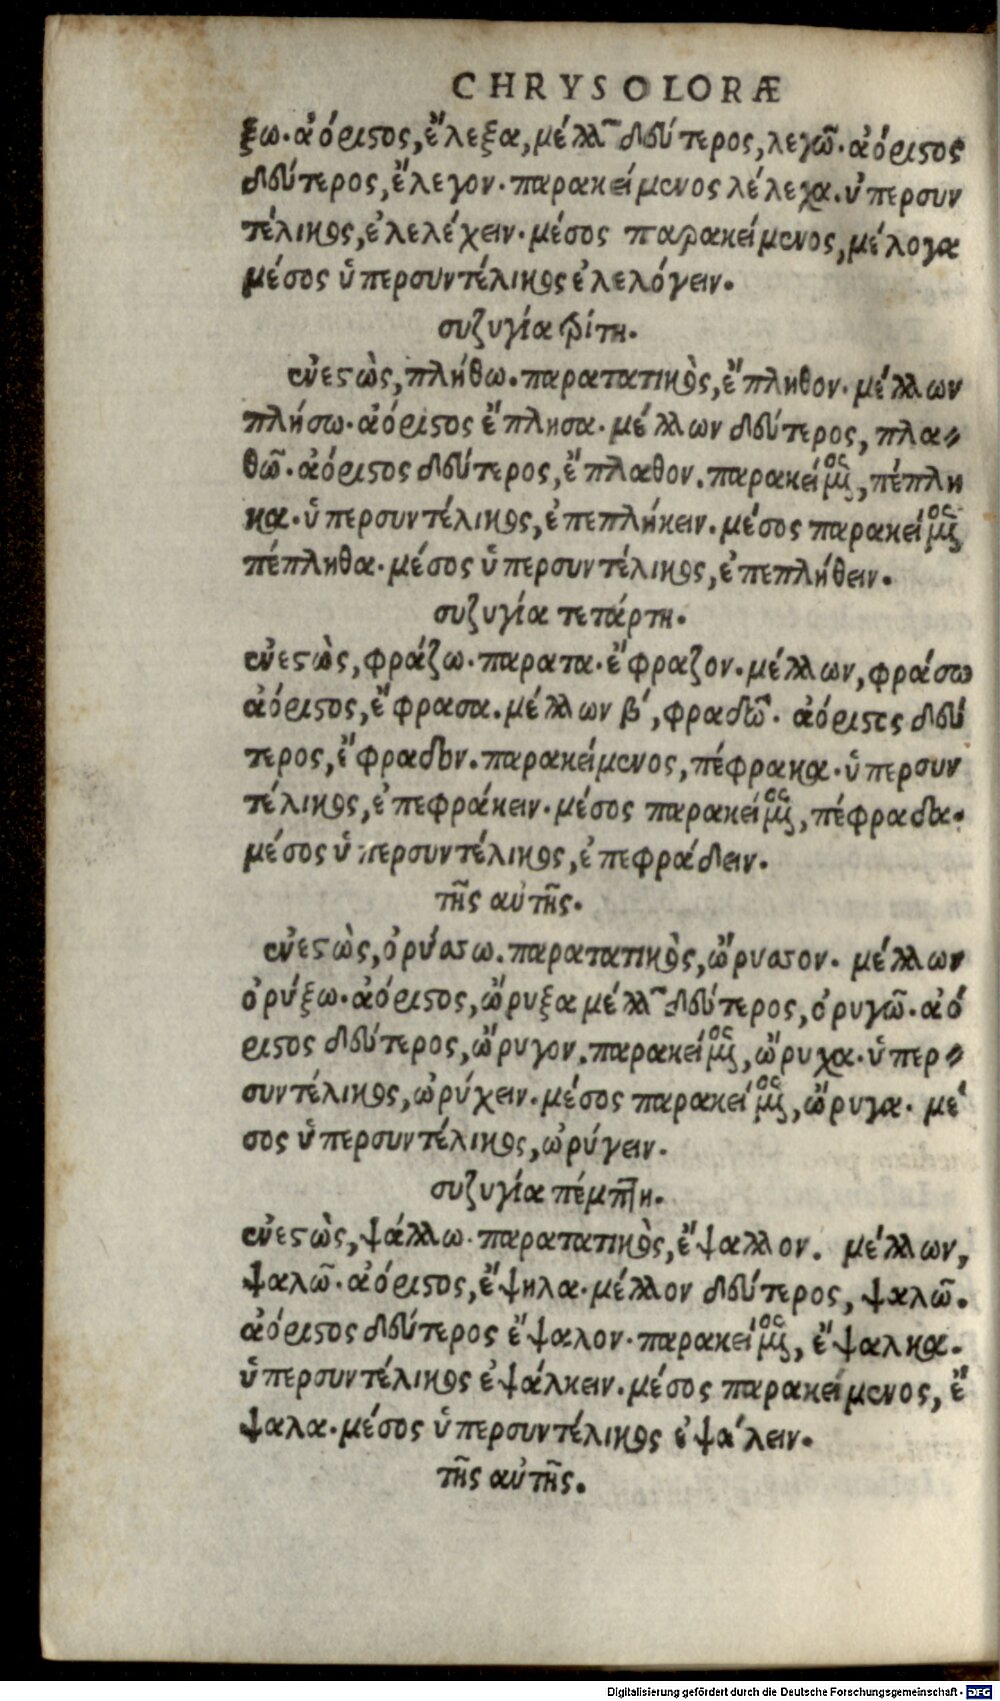 CHRYSOLORÆ
ξω·ἀόριστος,ἔλεξα,μέλλ~ δεύτερος,λεγῶ·ἀόριστος
δεύτερος,ἔλεγον·παρακείμενος λέλεχα.ὑπερσυν
τέλικος,ἐλελέχειν·μέσος παρακείμενος,μέλογα
μέσος ὑπερσυντέλικος ἐλελόγειν.
συζυγία τρίτη.
ἐνεστὼς,πλήθω.παρατατικὸς,ἔπληθον·μέλλων
πλήσω·ἀόριστος ἔπλησα·μέλλων δεύτερος, πλα-
θῶ·ἀόριστος δεύτερος,ἔπλαθον.παρακείμ(ος),πέπλη
κα·ὑπερσυντέλικος,ἐπεπλήκειν.μέσος παρακείμ(ος)
πέπληθα·μέσος ὑπερσυντέλικος,ἐπεπλήθειν.
συζυγία τετάρτη.
ἐνεστὼς,φράζω·παρατα·ἔφραζον.μέλλων,φράσω
ἀόριστος,ἔφρασα.μέλλων β´,φραδῶ· ἀόριστος δεύ
τερος,ἔφραδον.παρακείμενος,πέφρακα·ὑπερσυν
τέλικος,ἐπεφράκειν·μέσος παρακείμ(ος),πέφραδα·
μέσος ὑπερσυντέλικος,ἐπεφράδειν.
τῆς αὐτῆς.
ἐνεστὼς,ὀρύσσω.παρατατικὸς,ὤρυσσον· μέλλων
ὀρύξω·ἀόριστος,ὤρυξα μέλλ~ δεύτερος,ὀρυγῶ·ἀό
ριστος δεύτερος,ὤρυγον.παρακείμ(ος),ὤρυχα·ὑπερ-
συντέλικος,ὠρύχειν·μέσος παρακείμ(ος),ὤρυγα· μέ
σος ὑπερσυντέλικος,ὠρύγειν.
συζυγία πέμπτη.
ἐνεστὼς,ψάλλω·παρατατικὸς,ἔψαλλον. μέλλων,
ψαλῶ·ἀόριστος,ἔψηλα·μέλλον δεύτερος, ψαλῶ.
ἀόριστος δεύτερος ἔψαλον·παρακείμ(ος), ἔψαλκα.
ὑπερσυντέλικος ἐψάλκειν.μέσος παρακείμενος, ἔ
ψαλα·μέσος ὑπερσυντέλικος ἐψάλειν.
τῆς αὐτῆς.
Digitalisierung gefördert durch die Deutsche Forschungsgemeinschaft - DFG